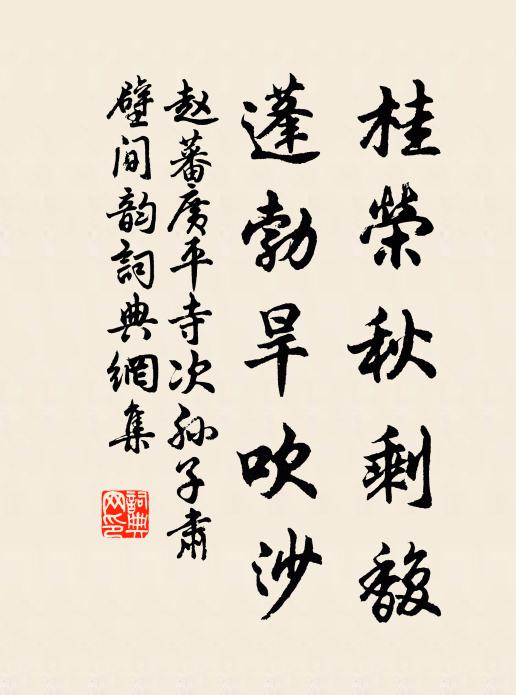 桂榮秋剩馥
蓬勃旱吹沙
赵蕃廣平寺次孙子肅
壁间韵詞典網集
詞典网印